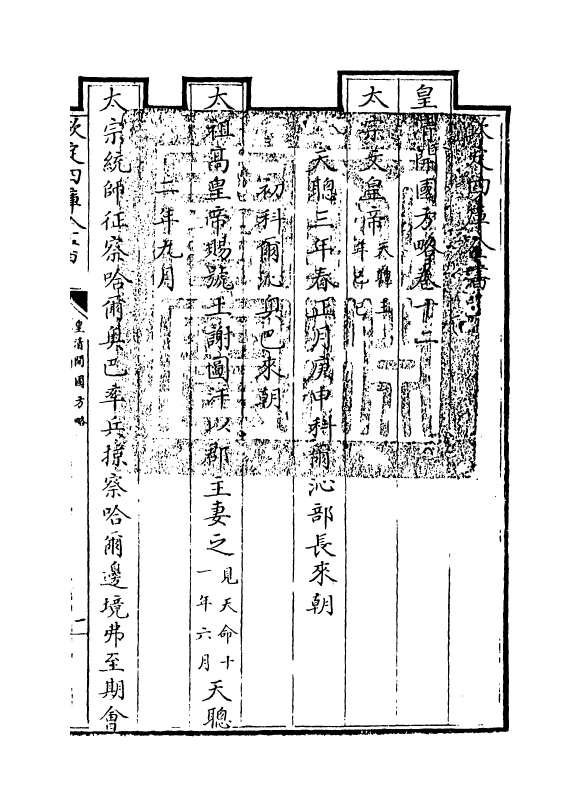 欽定四庫全書
皇清開國方略卷十二
太宗文皇帝天聰三年己巳
天聰三年春正月庚申科爾沁部長來朝
初科爾沁奧巴來朝
太祖高皇帝賜號土謝圖汗以郡主妻之見天命十一年六月天聰
二年九月
太宗統師征察哈爾奧巴率兵掠察哈爾邊境弗至期會
欽定四庫全書
皇清開國方略